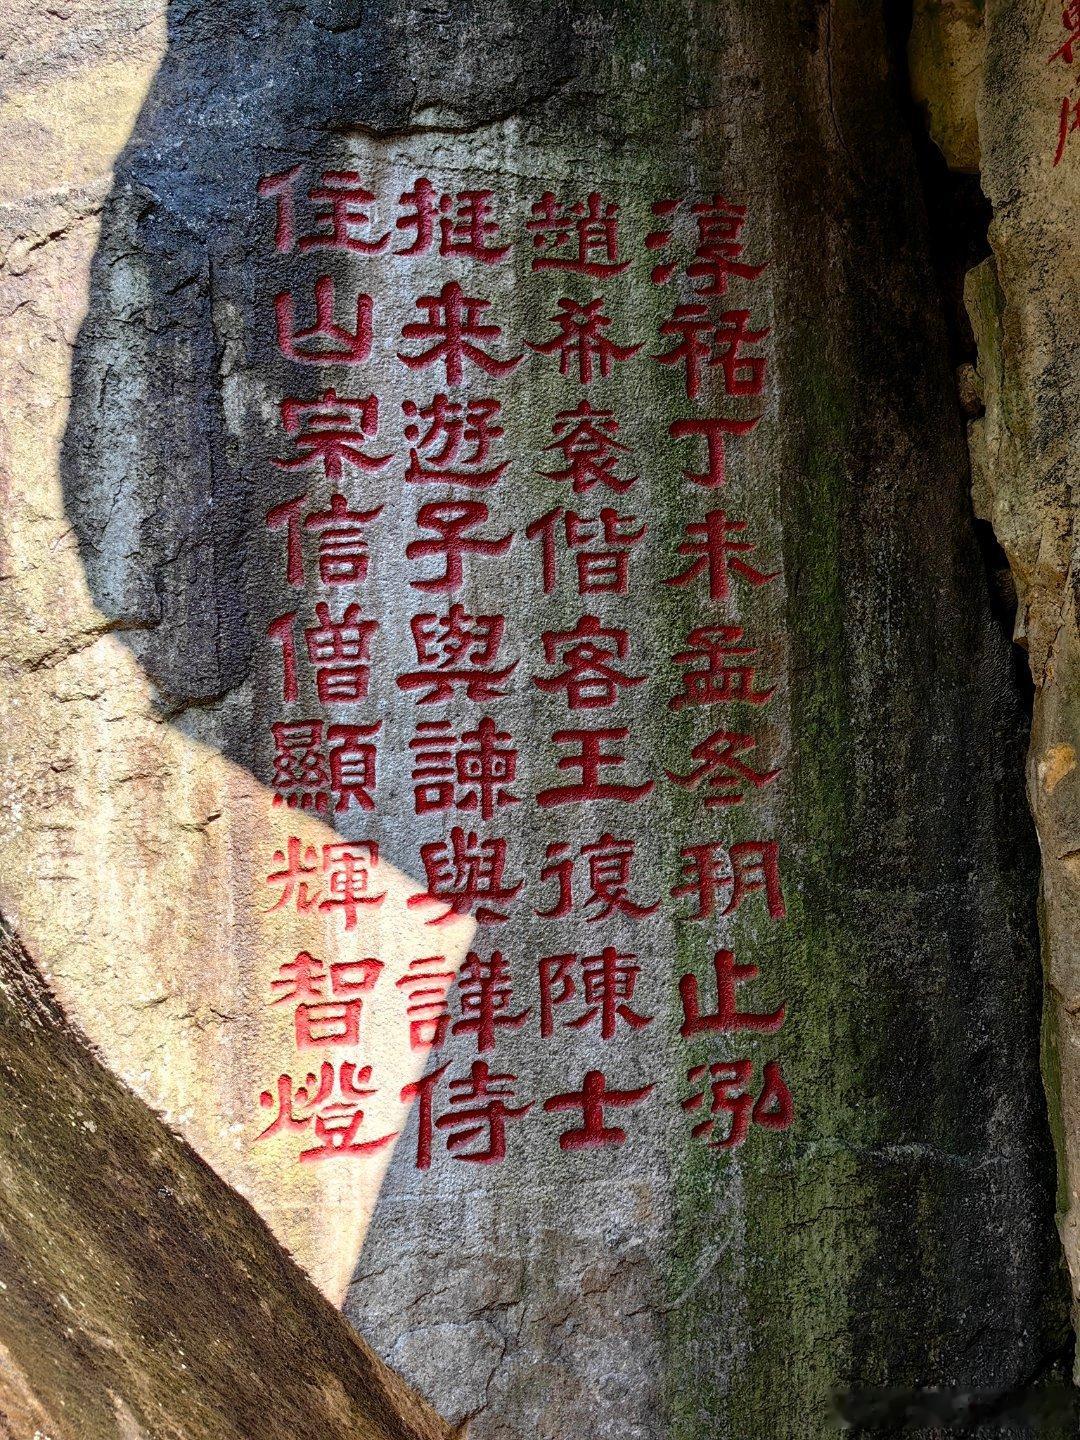 淳祐丁未孟冬玥止泓
趙希袞偕客王復陳士
挺来遊子與諫與譁侍
住山宗信僧顯輝智燈